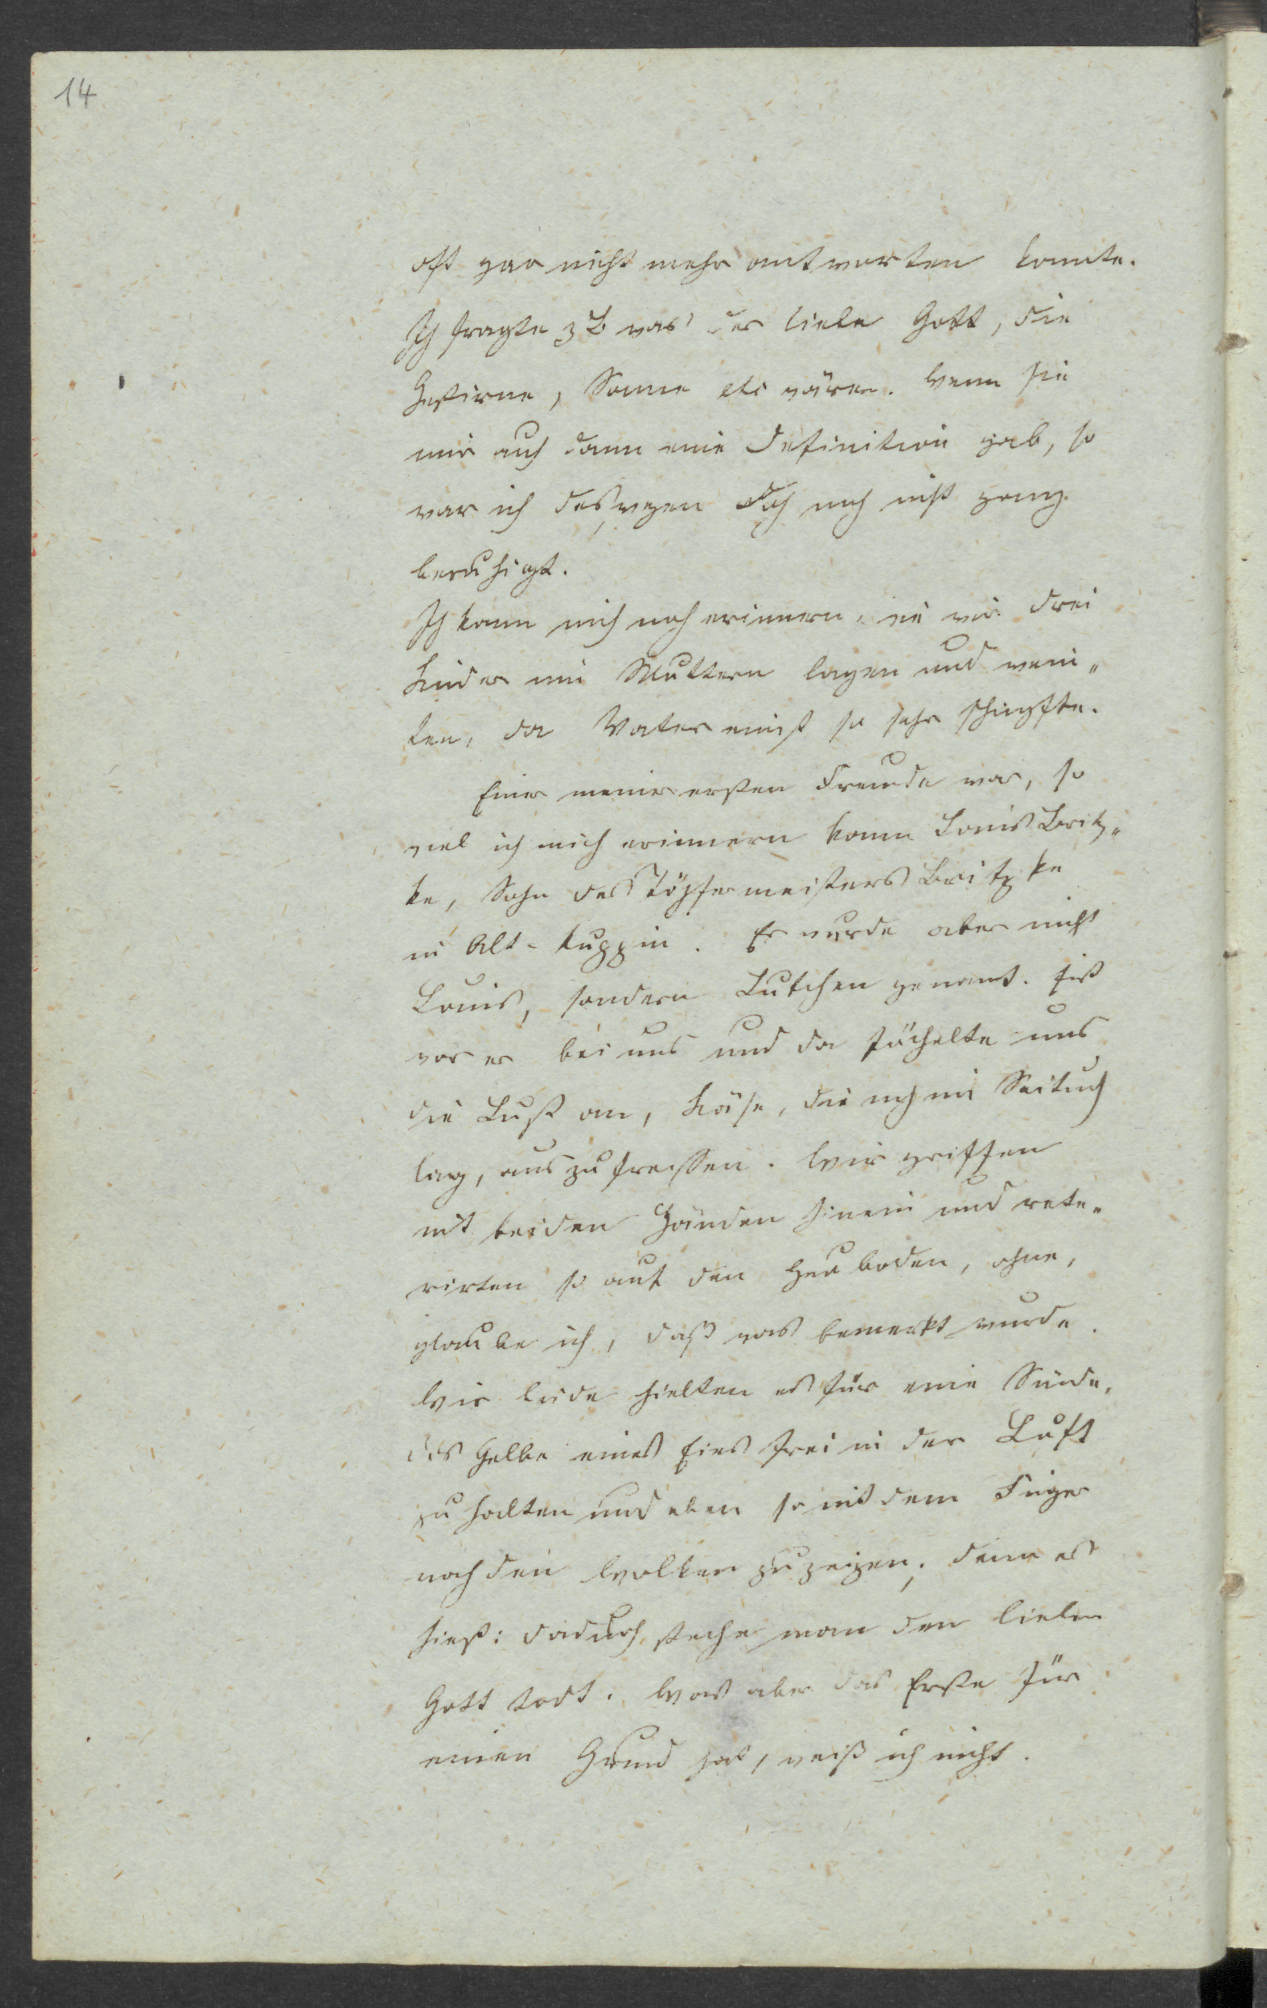 14
oft gar nicht mehr antworten konnte.
Ich fragte z B was der liebe Gott, die
Gestirne, Sonne etc wären. Wenn sie
mir auch dann eine Definition gab, so
war ich deswegen doch noch nicht ganz
beruhigt.
Ich kann mich noch erinnern, wie wir drei
Kinder um Muttern lagen und wein„
ten, da Vater einst so sehr schimpfte.
Einer meiner ersten Freunde war, so
viel ich mich erinnern kann Louis Britz„
ke, Sohn des Töpfermeisters Britzke
in Alt-Ruppin. Er wurde aber nicht
Louis, sondern Lutchen genannt. Einst
war er bei uns und da fächelte uns
die Lust an, Käse, die noch im
lag, auszufressen. Wir griffen
mit beiden Händen hinein und rete„
rirten so auf den Heuboden, ohne,
glaube ich, daß was bemerkt wurde.
Wir beide hielten es für eine Sünde,
das Gelbe eines Eies frei in der Luft
zu halten und eben so mit dem Finger
nach den Wolken zu zeigen; denn es
hieß: dadurch steche man den lieben
Gott todt. Was aber das Erste für
einen Grund hat, weiß ich nicht.